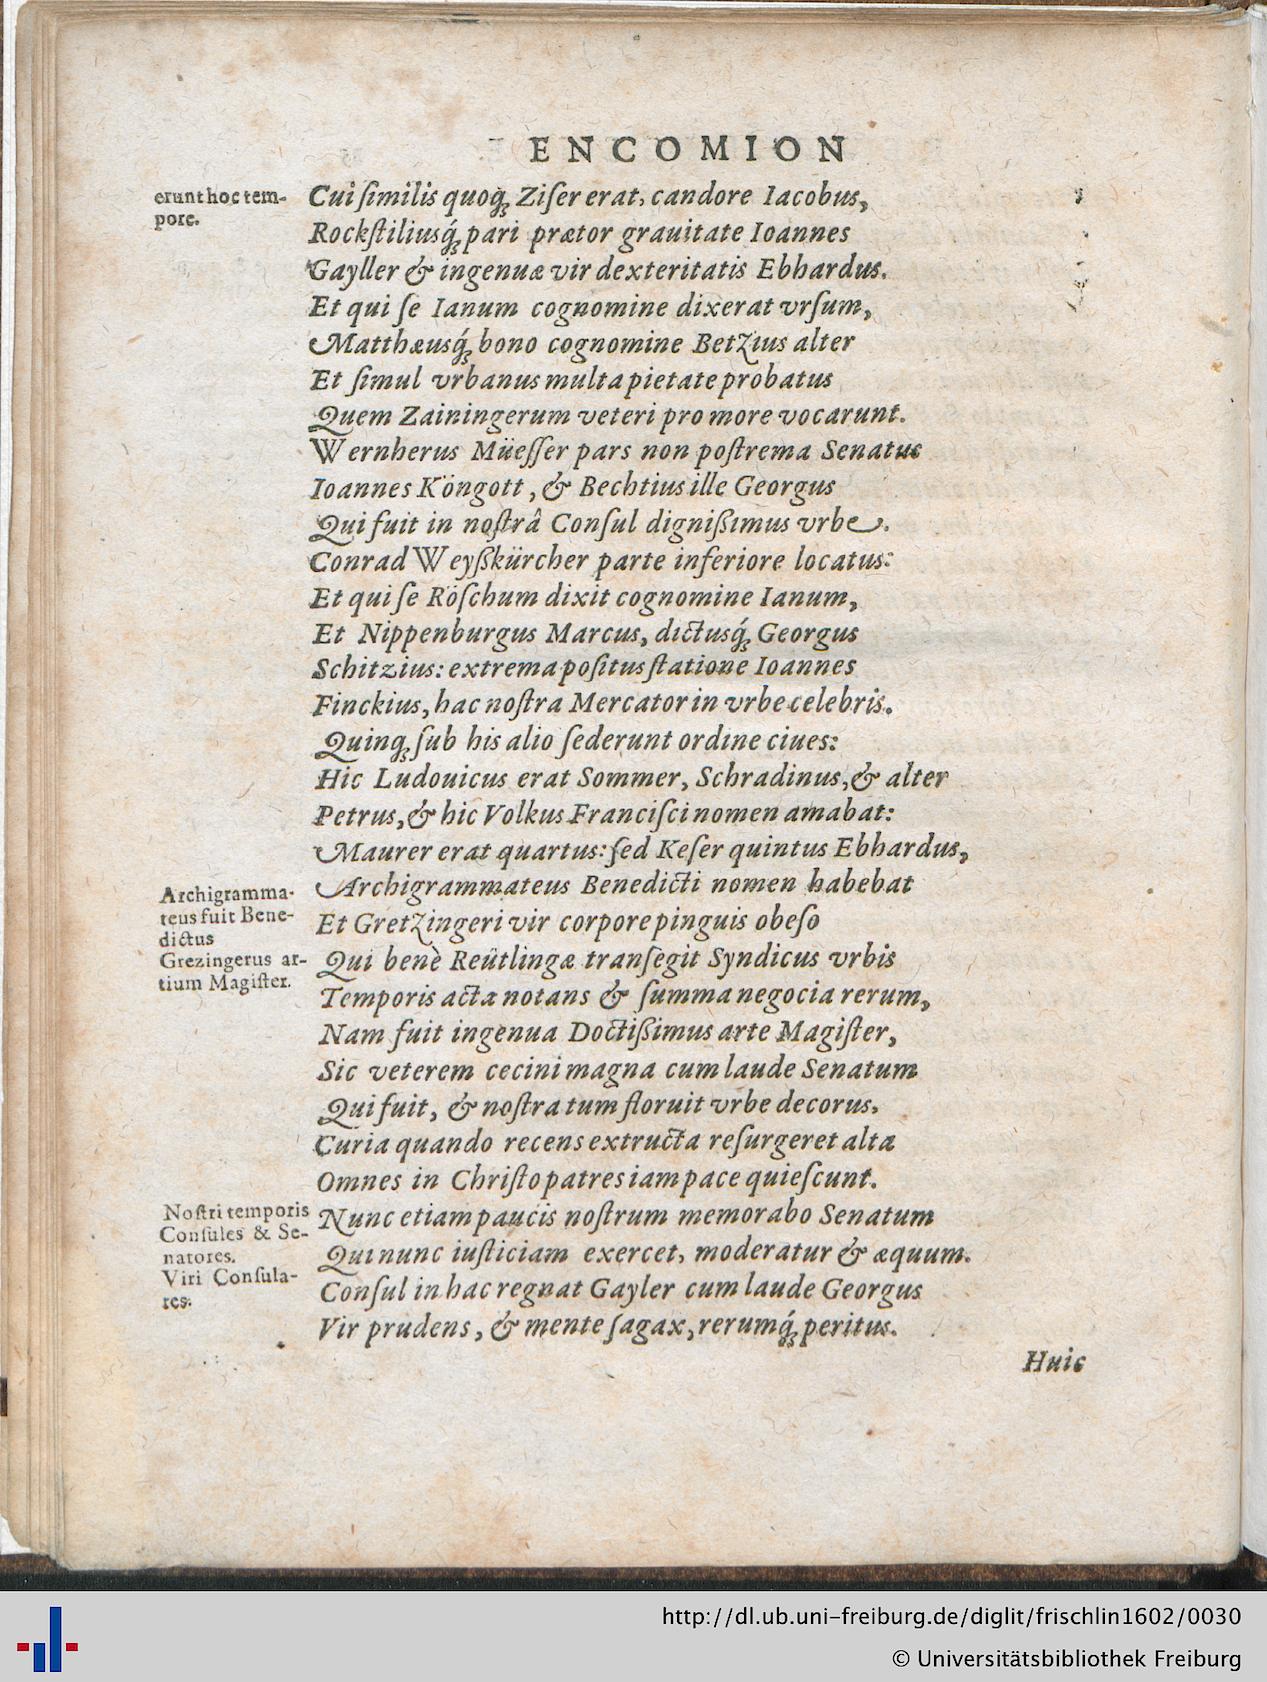 ENCOMION
erunt hoc tem-
pore.
Cui ſimilis quoq́; Ziſer erat, candore Iacobus,
Rockſtiliusq́; pari prætor grauitate Ioannes
Gayller & ingenuæ vir dexteritatis Ebhardus.
Et qui ſe Ianum cognomine dixerat vrſum,
Matthæusq́; bono cognomine Betzius alter
Et ſimul vrbanus multa pietate probatus
Quem Zainingerum veteri pro more vocarunt.
Wernherus Müeſſer pars non poſtrema Senatus
Ioannes Köngott, & Bechtius ille Georgus
Qui fuit in noſtrâ Conſul dignißimus vrbe.
Conrad Weyßkürcher parte inferiore locatus:
Et qui ſe Röſchum dixit cognomine Ianum,
Et Nippenburgus Marcus, dictusq́; Georgus
Schitzius: extrema poſitus ſtatione Ioannes
Finckius, hac noſtra Mercator in vrbe celebris.
Quinq; ſub his alio ſederunt ordine ciues:
Hic Ludouicus erat Sommer, Schradinus, & alter
Petrus, & hic Volkus Franciſci nomen amabat:
Maurer erat quartus: ſed Keſer quintus Ebhardus,
Archigramma-
teus fuit Bene-
dictus
Grezingerus ar-
tium Magiſter.
Archigrammateus Benedicti nomen habebat
Et Gretzingeri vir corpore pinguis obeſo
Qui benè Reütlingæ tranſegit Syndicus vrbis
Temporis acta notans & ſumma negocia rerum,
Nam fuit ingenua Doctißimus arte Magiſter,
Sic veterem cecini magna cum laude Senatum
Qui fuit, & noſtra tum floruit vrbe decorus.
Curia quando recens extructa reſurgeret alta
Omnes in Chriſto patres iam pace quieſcunt.
Noſtri temporis
Conſules & Se-
natores.
Viri Conſula-
res.
Nunc etiam paucis noſtrum memorabo Senatum
Qui nunc iuſticiam exercet, moderatur & æquum.
Conſul in hac regnat Gayler cum laude Georgus
Vir prudens, & mente ſagax, rerumq́; peritus.
Huic
http://dl.ub.uni-freiburg.de/diglit/frischlin1602/0030
© Universitätsbibliothek Freiburg